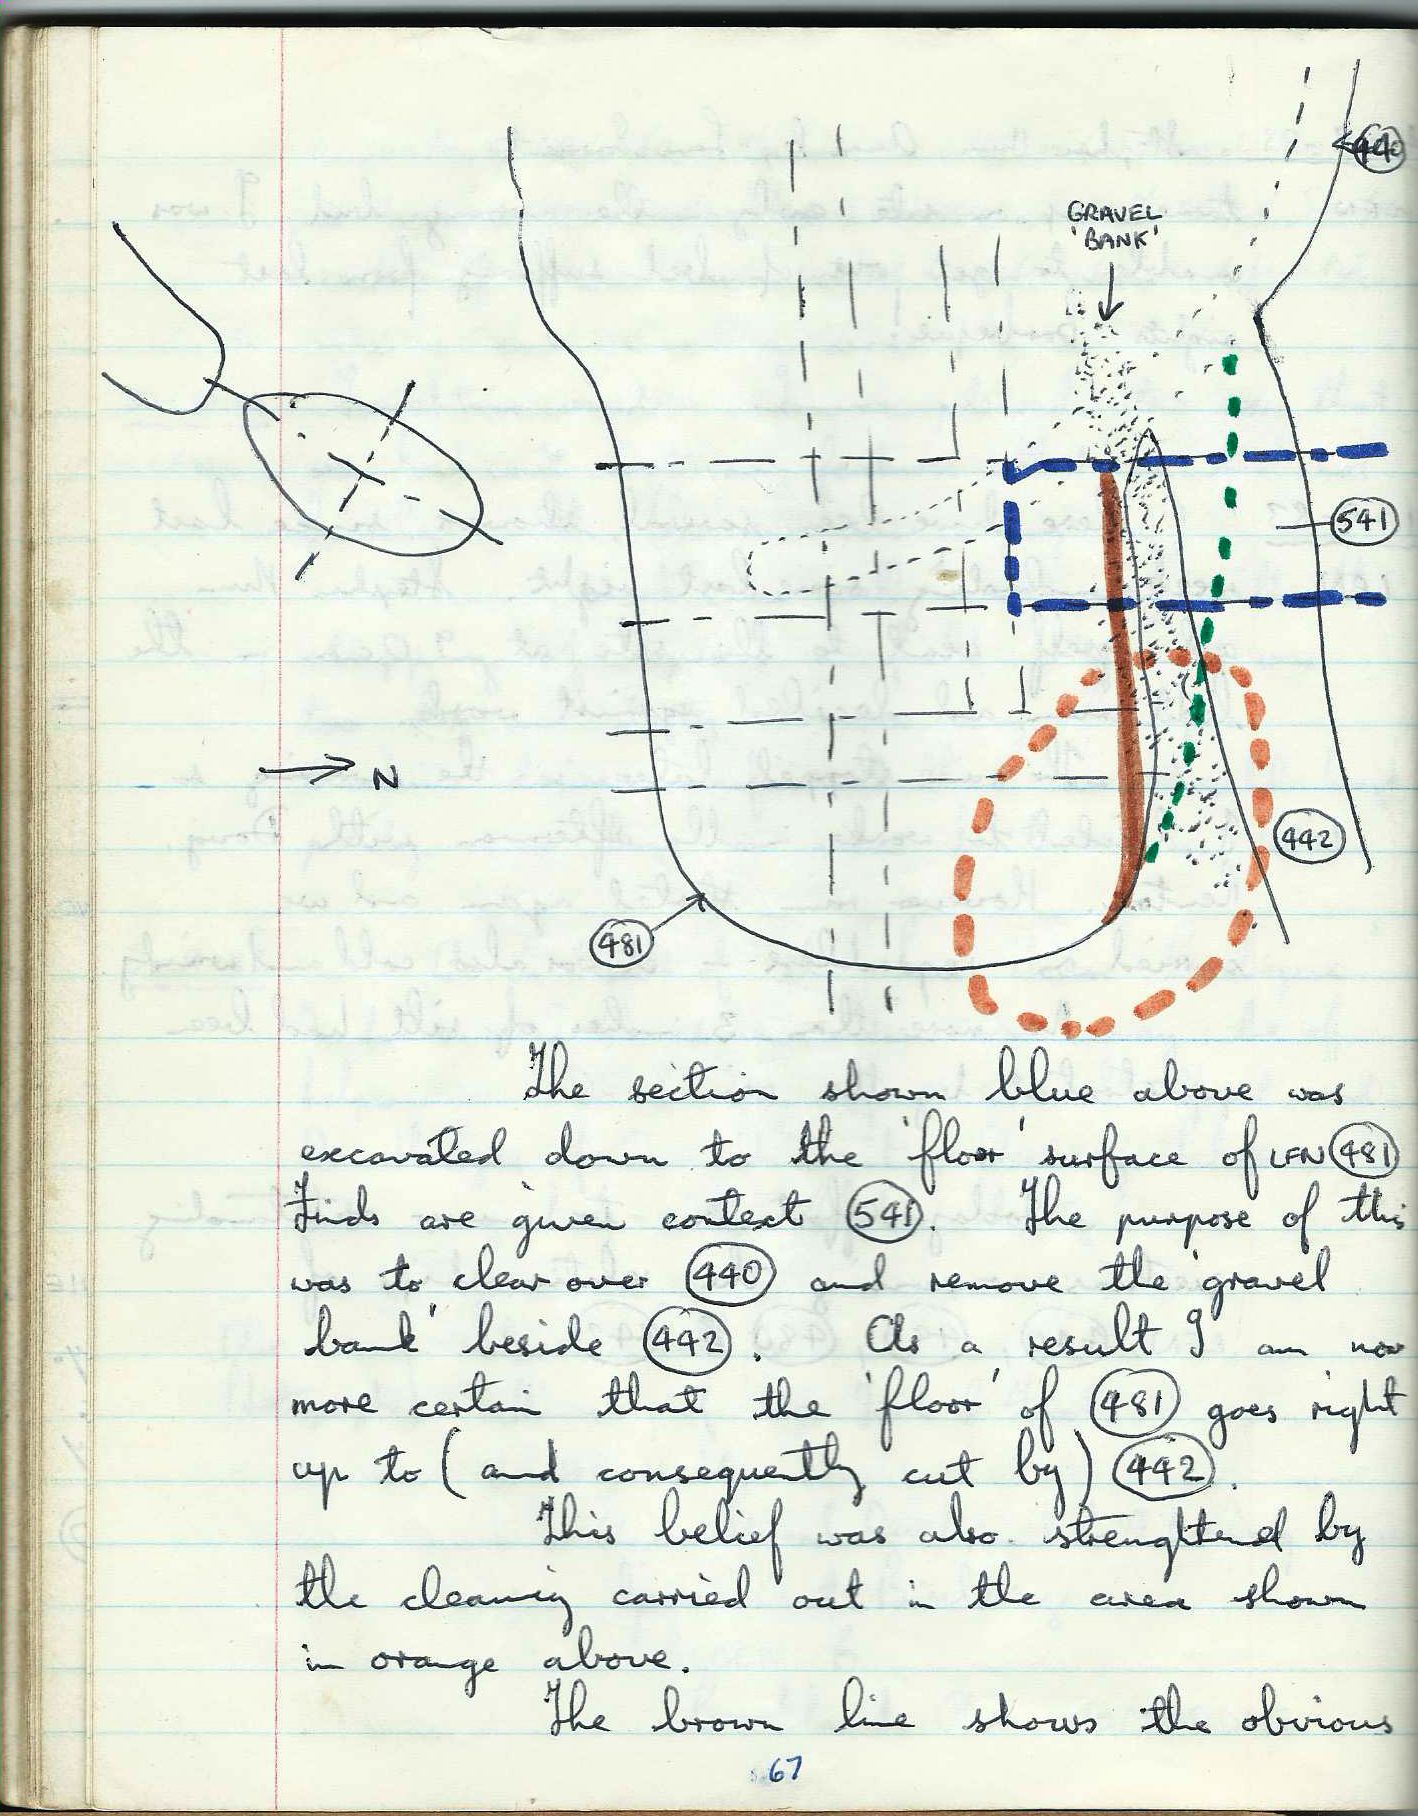 440
GRAVEL
'BANK'
541
N
442
481
The section shown blue above was
excavated down to the 'floor' surface of LFN 481
Finds are given context 541. The purpose of this
was to clear over 440 and remove the 'gravel
bank' beside 442. As a result I am now
more certain that the 'floor' of 481 goes right
up to (and consequently cut by) 442.
This belief was also strenghtened by
the cleaning carried out in the area shown
in orange above.
The brown line shows the obvious
67